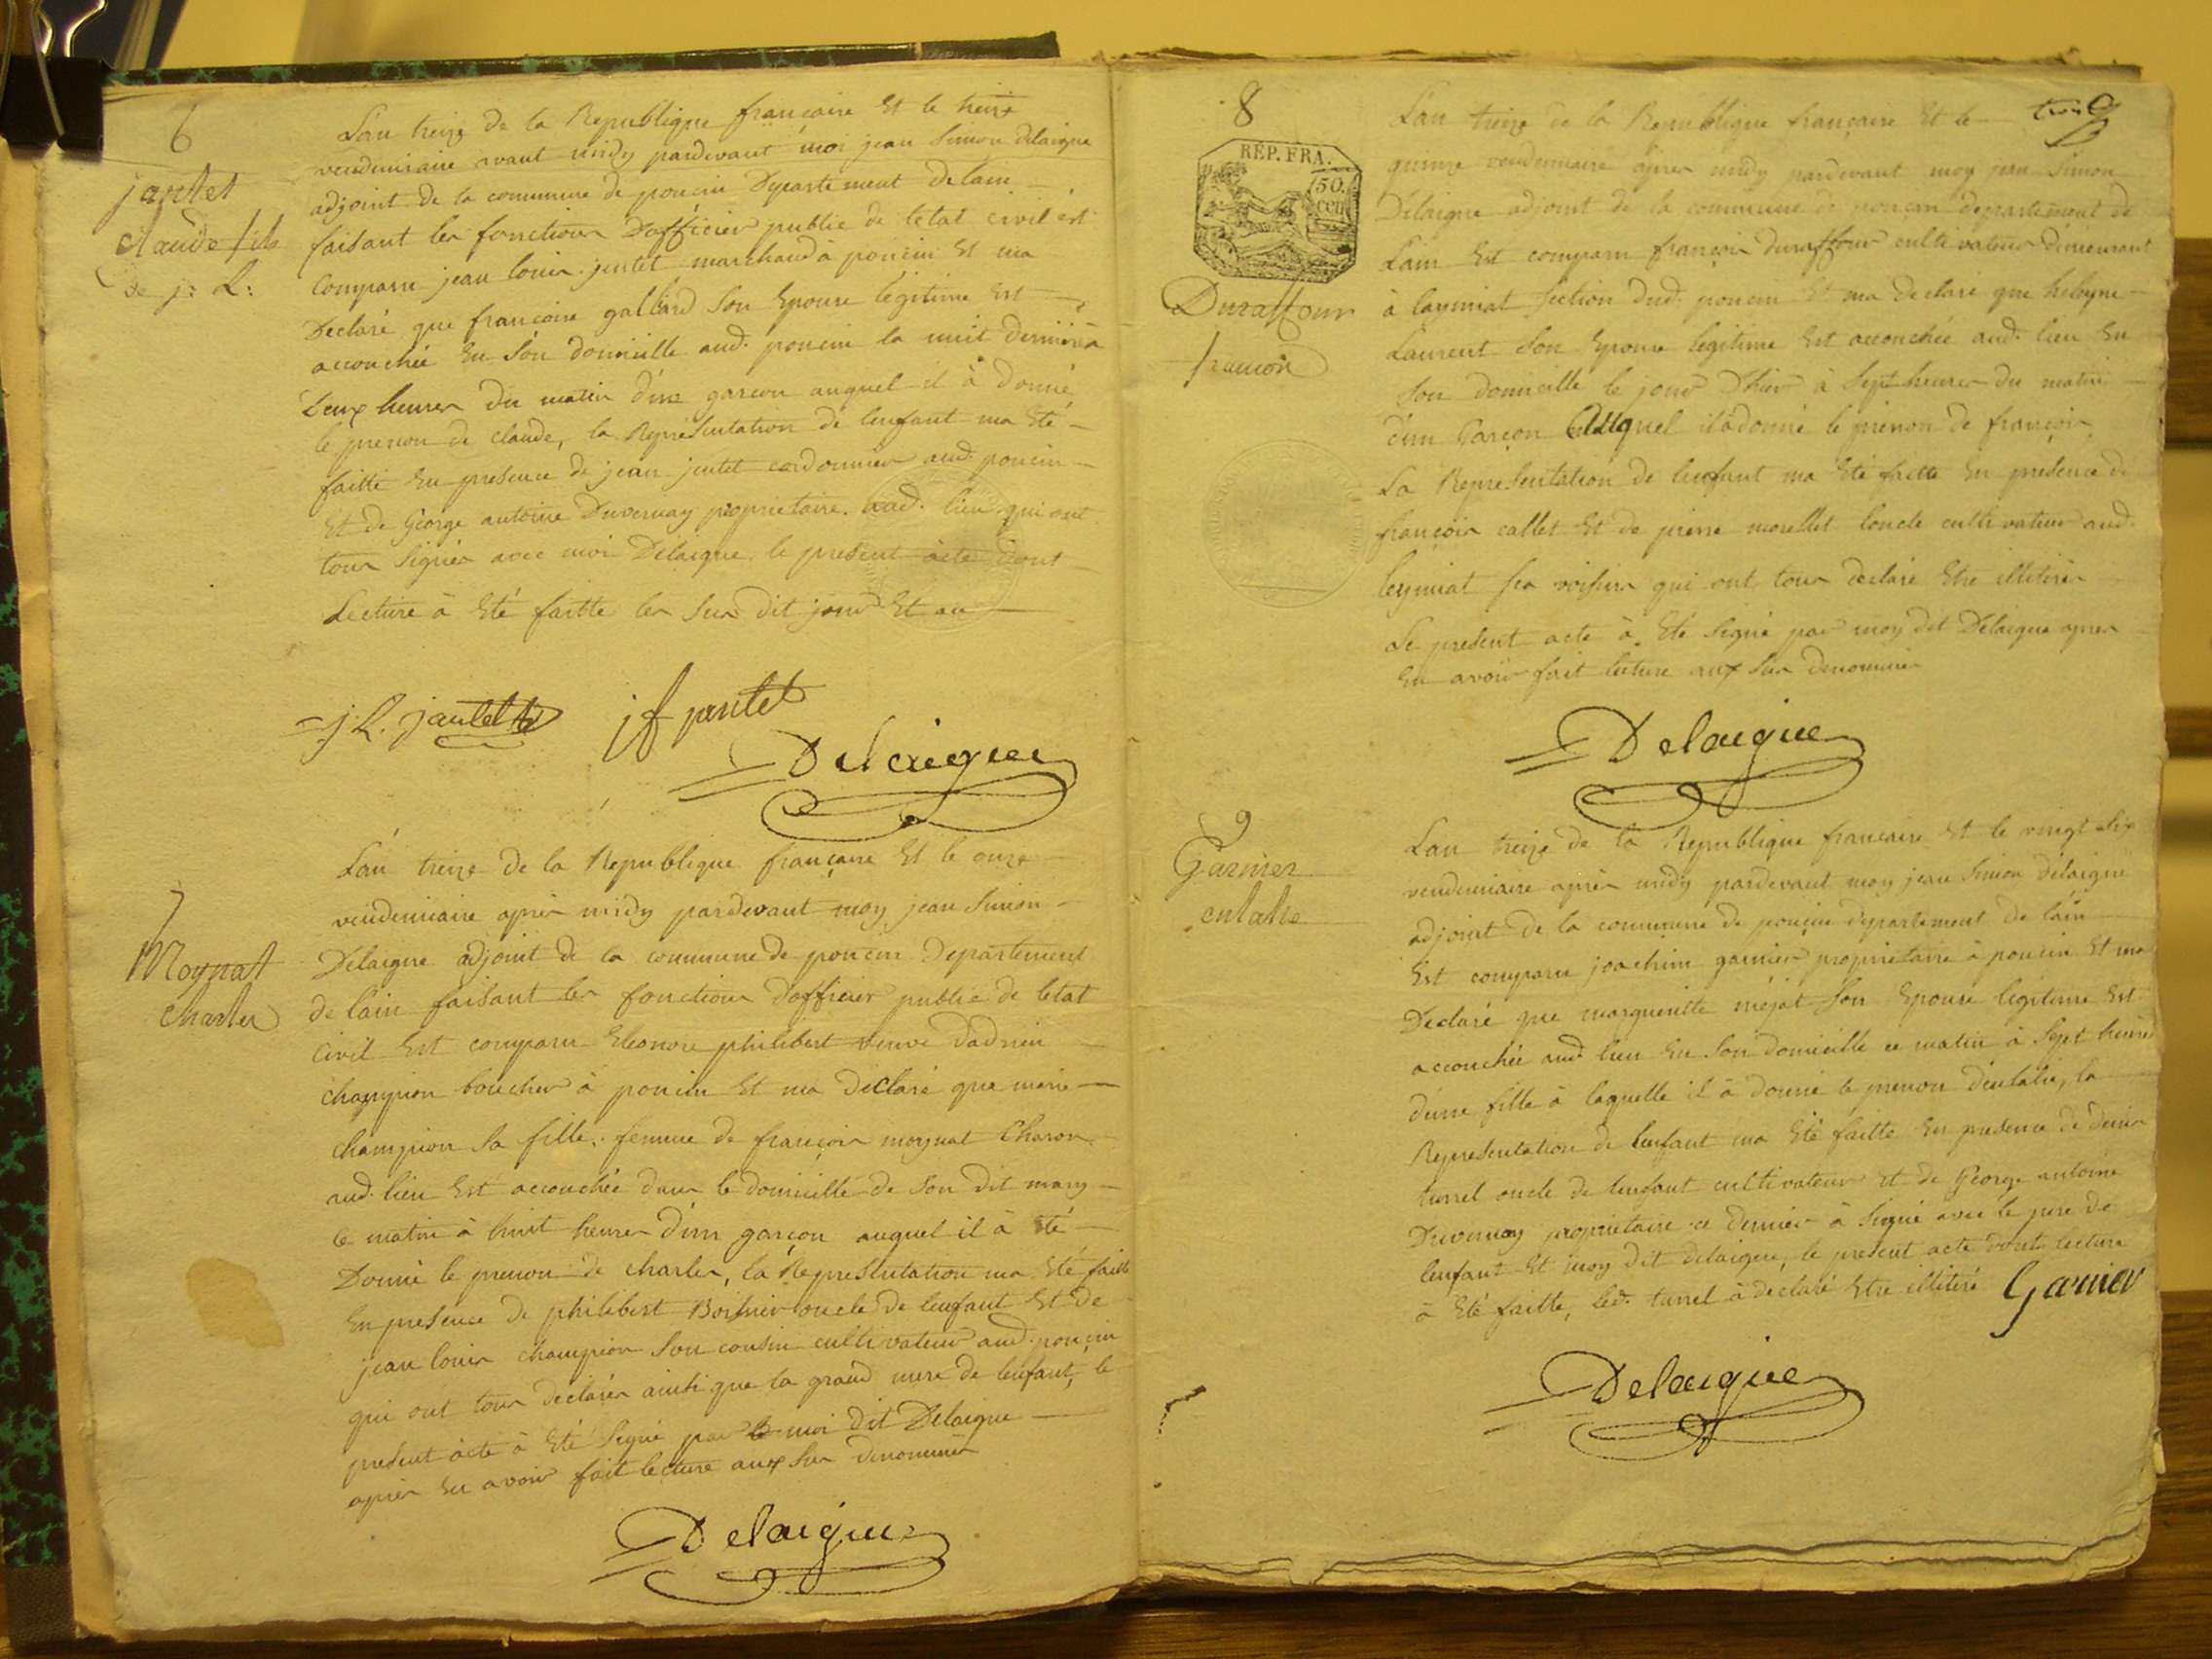 6
jantet
claude fils
de j: L:
Lan treize de la Republique francaise Et le treize
vendemiaire avant midy pardevant moi jean Simon Delaigue
adjoint de la commune de poncin Departement delain
faisant les fonctions Dofficier public de letat civil est
Comparu jean louis jentet marchand à poncin Et ma
Declaré que francoise galland Son Epouse legitime Est
accouchée En Son domicille aud. poncin la nuit derniere à
Deux heures du matin d'un garcon auquel il à donné
le prenon de claude, la Representation de lenfant ma Eté
faitte En presence de jean jentet cordonnier aud. poncin
Et de George antoine Duvernay proprietaire aud. lieu qui ont
tous Signés avec moi Delaigue le present acte dont
Lecture à Eté faitte les Sus dit jour Et an
j L. jantet
jf jantet
Delaigue
7
Moynat
Charles
Lan treize de la Republique française Et le onze
vendemiaire après midy pardevant moy jean Simon
Delaigue adjoint de la commune de poncin Departement
de lain faisant les fonctions dofficier public de letat
Civil Est comparu Eleonore philibert veuve dadrien
champion boucher à poncin Et ma déclaré que marie
champion Sa fille, femme de françois moynat Charon
aud. lieu Est accouchée dans le domicille de Son dit mary
ce matin à huit heures d'un garçon auquel il à Eté
Donné le prenon de charles, la Representation ma Eté faitte
En presence de philibert oncle de lenfant Et de
jean louis champion Son cousin cultivateur aud. poncin
qui ont tous declarés ainsi que la grand mere de lenfant, le
present acte à Eté Signé par moi dit Delaigue
après En avoir fait lecture aux Sus denommés
Delaigue
8
REP. FRA.
50.
cen
Duraffour
francois
Lan treize de la Republique française Et le
quinze vendemiaire après midy pardevant moy jean Simon
Delaigue adjoint de la commune de poncin departement de
Lain Est comparu françois duraffour cultivateur demeurant
à leymiat section dud. poncin Et ma declaré que
Laurent Son Epouse legitime Est accouchée aud. lieu En
Son domicille le jour Dhier à Sept heures du matin
d'un Garçon Auquel il à donné le prenon de françois
La Representation de lenfant ma Eté faitte En presence de
françois callet Et de pierre morellet loncle cultivateurs aud.
leymiat Ses voisins qui ont tous declaré Etre illiterés
Le present acte à Eté Signé par moy dit Delaigue après
En avoir fait lecture aux Sus denommés
Delaigue
9
Garnier
eulalie
Lan treize de la Republique francaise Et le vingt Six
vendemiaire après midy pardevant moy jean Simon Delaigue
adjoint de la commune de poncin departement de lain
Est comparu joachim garnier proprietaire à poncin Et ma
Declaré que margueritte mejat Son Epouse legitime Est
accouchée aud. lieu En Son domicille ce matin à Sept heures
dune fille à laquelle il à donné le prenon deulalie, la
Representation de lenfant ma Eté faitte En presence de denis
turrel oncle de lenfant cultivateur Et de George antoine
Duvernay proprietaire ce dernier à Signé avec le pere de
lenfant Et moy dit delaigue, le present acte dont lecture
à Eté faitte, led. turrel à declaré Etre illiteré
Garnier
Delaigue